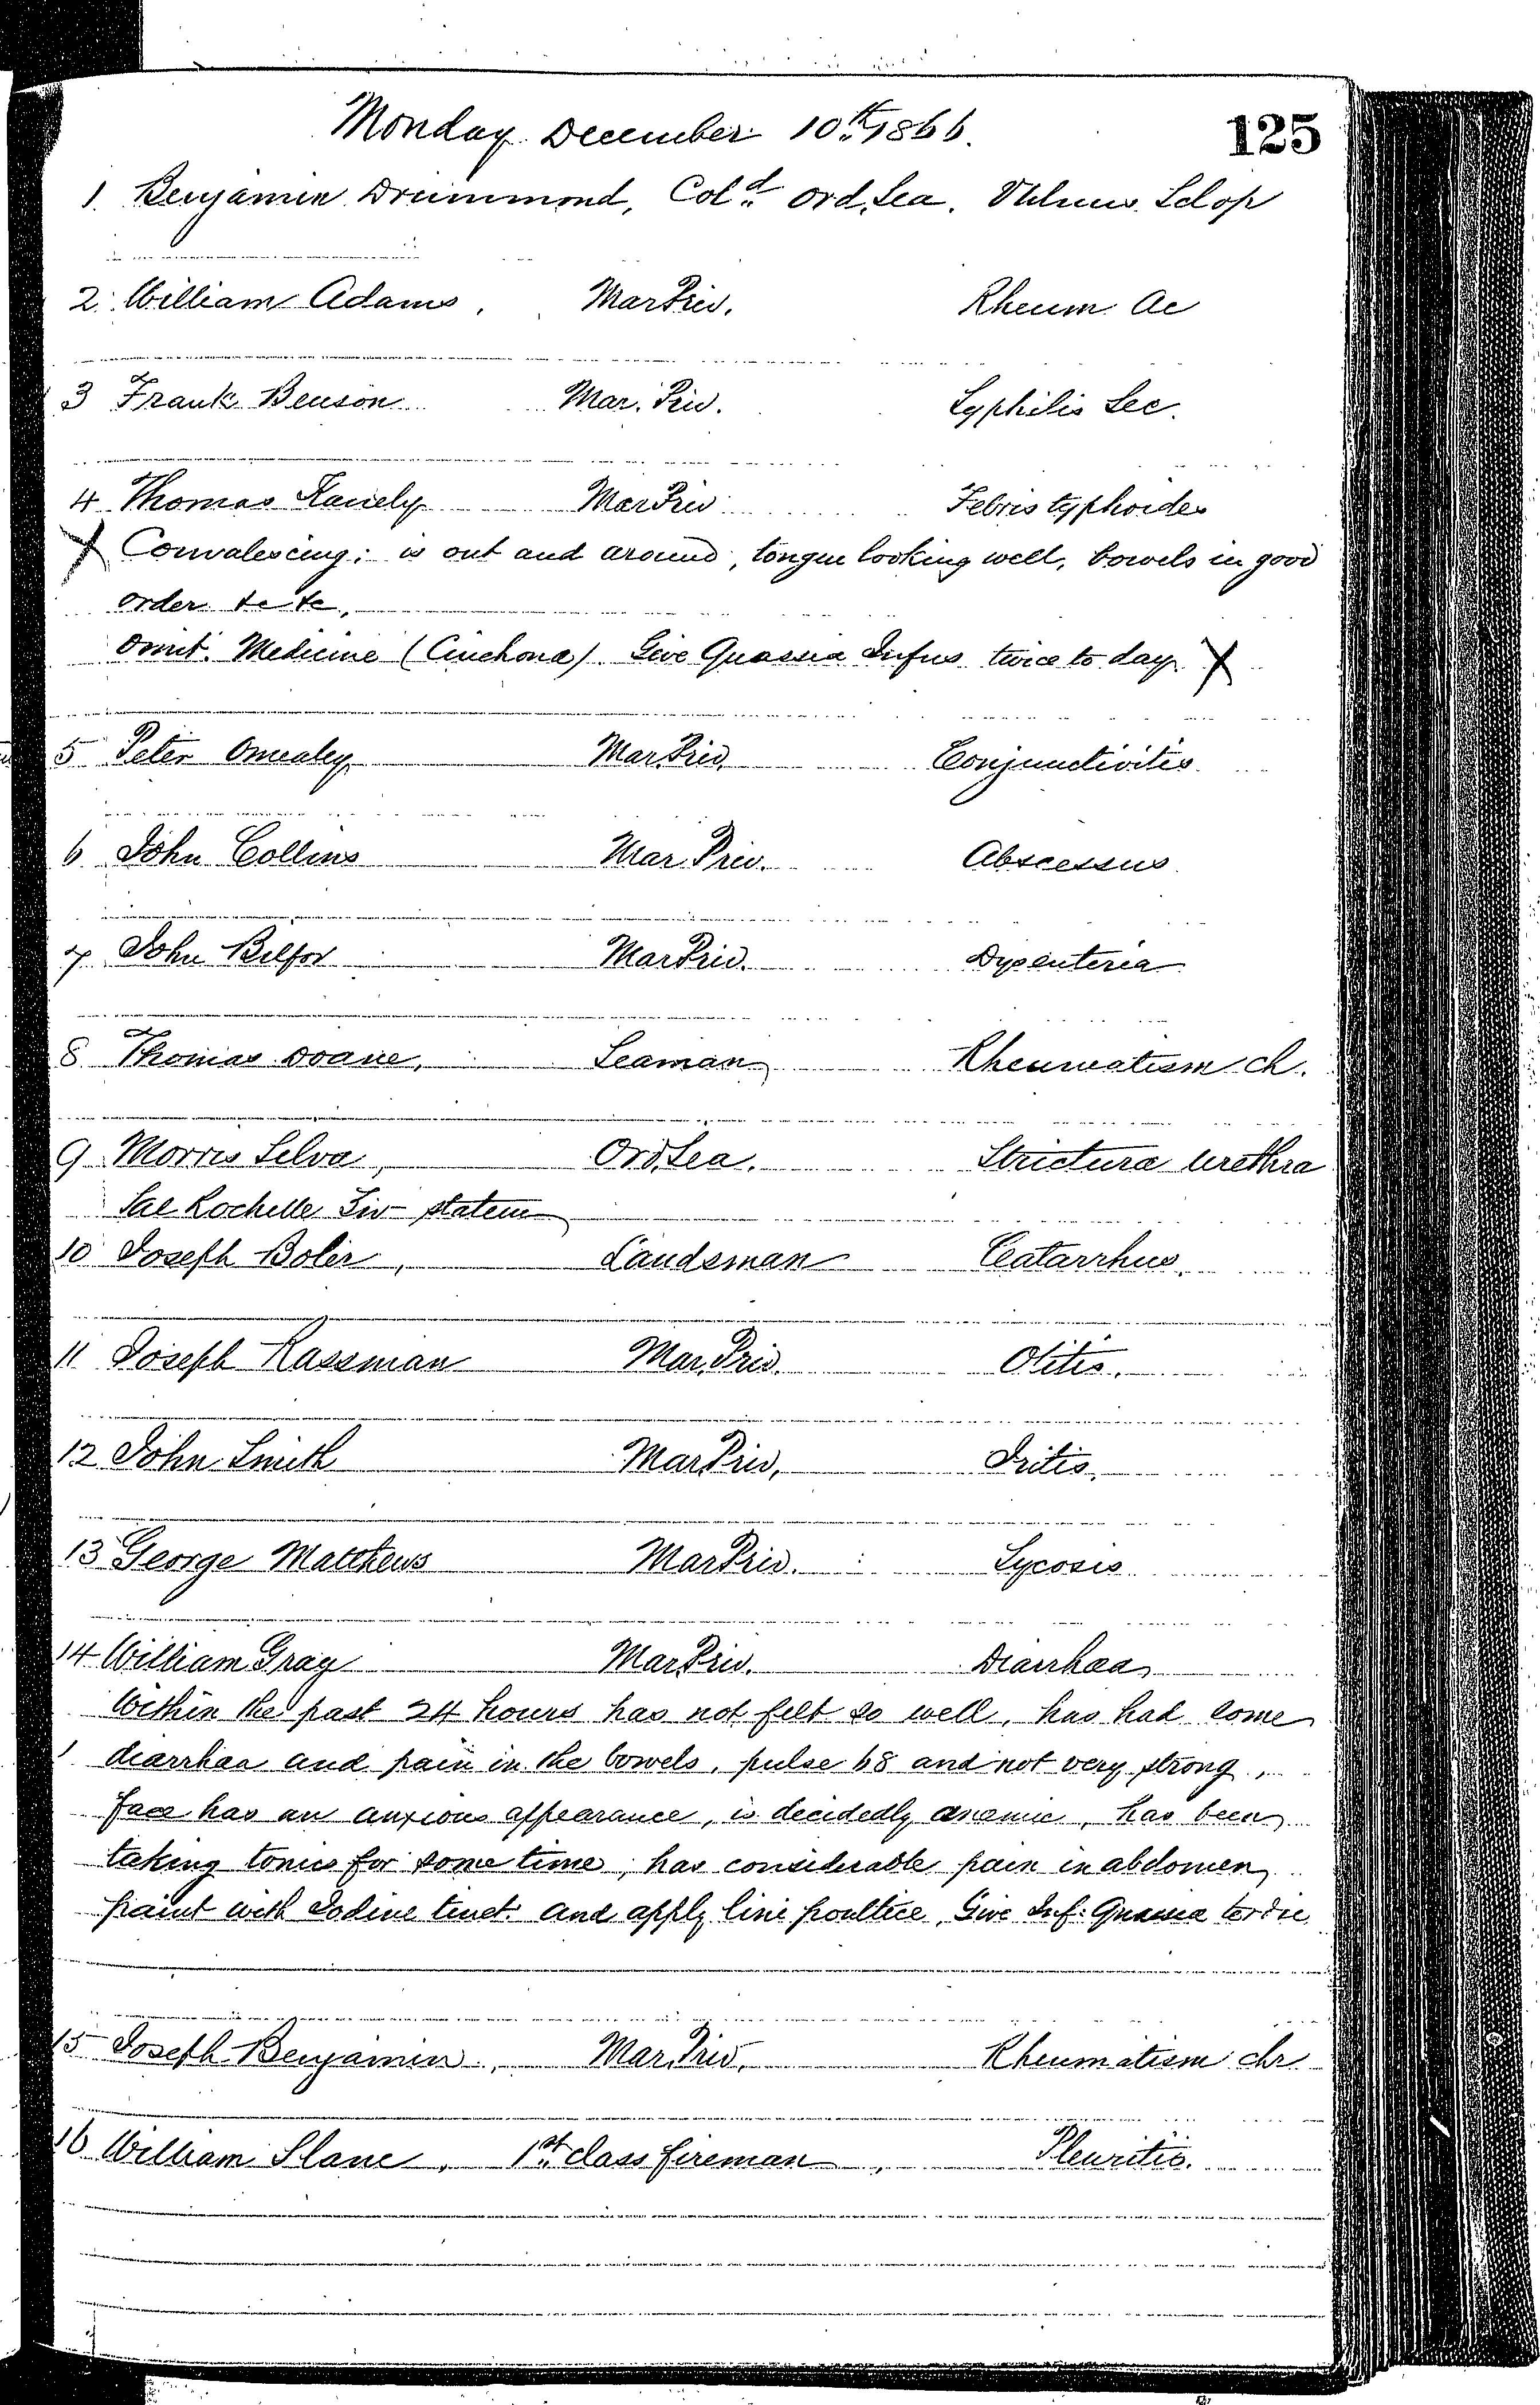 Monday December 10th 1866.
125
1. Benjamin Drummond, Cold Ord. Sea. Vulnus Sclop
2. William Adams, Mar Priv. Rheum Ac
3 Frank Benson Mar. Priv. Syphilis Sec.
4 Thomas Mar Priv Febris typhoides
X Convalescing; is out and around, tongue looking well, bowels in good
order &c &c,
omit. Medicine (Cinchona). Give Quassia Infus twice to day X
5 Peter Omealey Mar. Priv. Conjunctivitis
6 John Collins Mar. Priv. Abscessus
7 John Belfor Mar Priv. Dysenteria
8 Thomas Doane, Seaman Rheumatism ch.
9 Morris Selva, Ord. Sea. Strictura Urethra
Sal Rochelle statem
10 Joseph Boler, Landsman Catarrhus.
11 Joseph Rassman Mar. Priv. Otitis.
12 John Smith Mar. Priv. Iritis.
13 George Matthews Mar Priv. Sycosis
14 William Gray Mar. Priv. Diarrhaa
Within the past 24 hours has not felt so well, has had some
diarrhaa and pain in the bowels, pulse 68 and not very strong,
face has an anxious appearance, is decidedly anemic, has been
taking tonics for some time, has considerable pain in abdomen
paint with Iodine tinct. and apply lini poultice, Give Inf: Quassia ter die
15 Joseph Benjamin, Mar. Priv. Rheumatism chr
16 William Slane, 1st class fireman, Pleuritis.